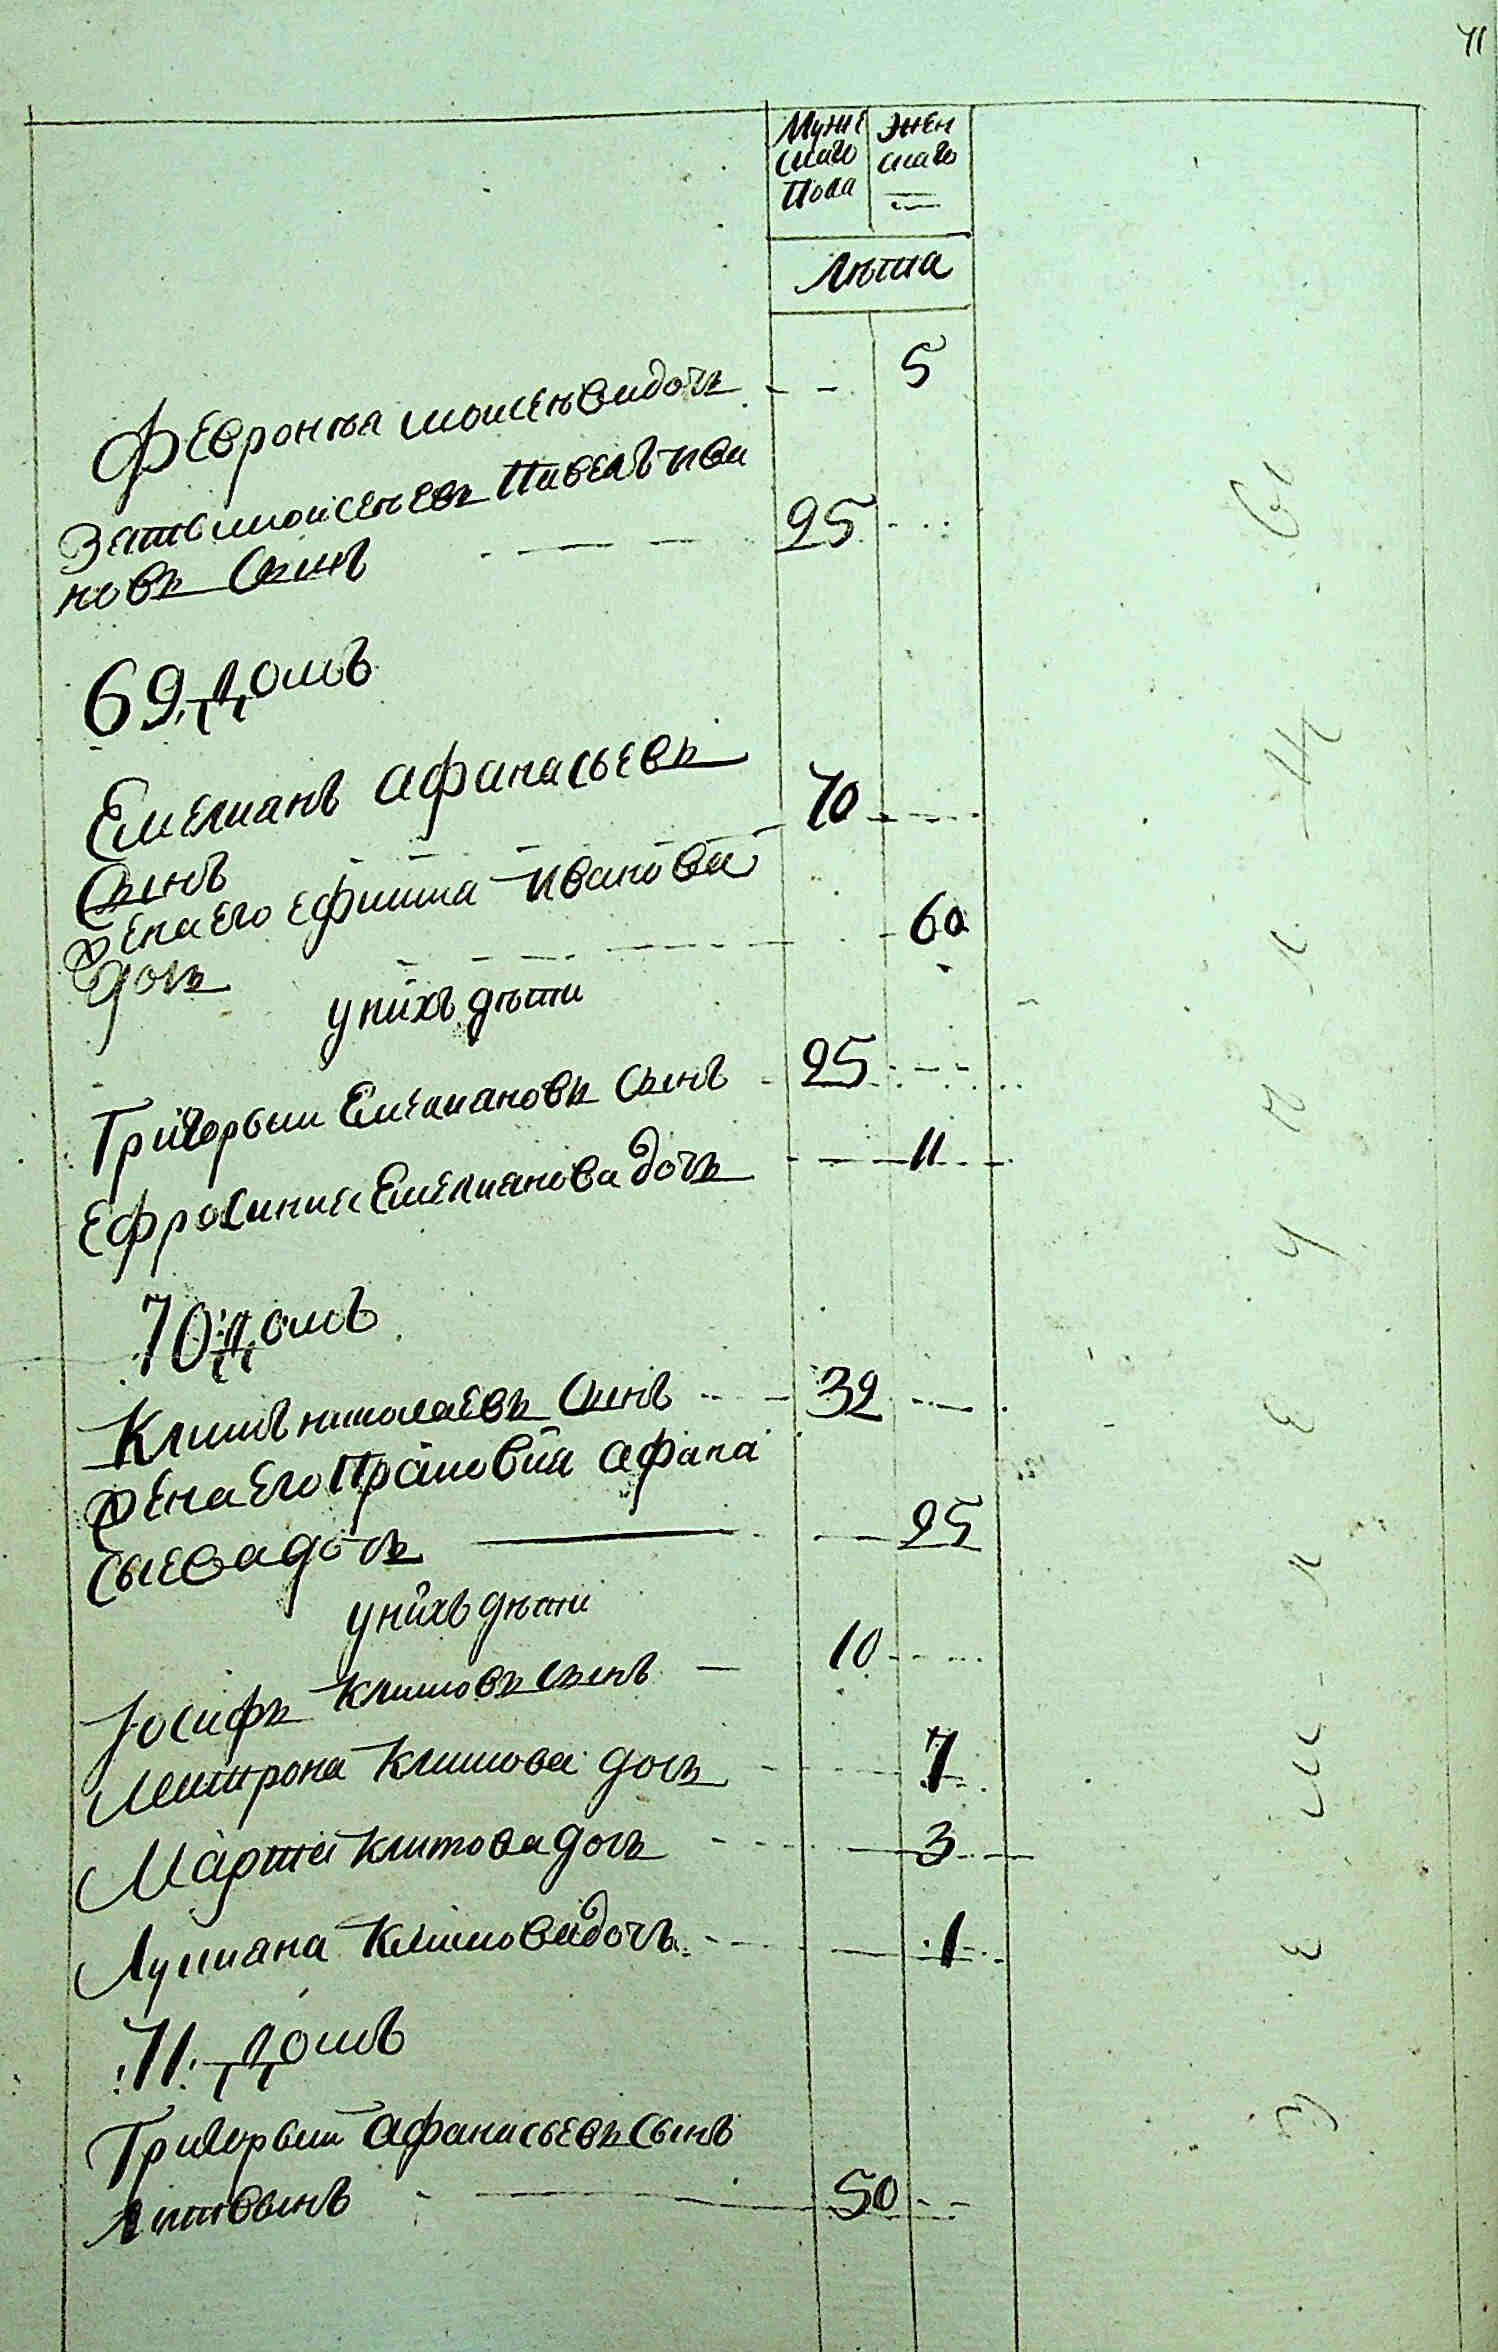 71
Муже
скаго
Пола
Жен
скаго
Лѣта
Февронѣа Моисеѣва дочь 5
Зять Моисеѣевъ Павелъ Ива
новъ Сынъ 25
69 Домъ
Емелианъ Афанасьевъ
Сынъ 70
Жена Его Ефимиа Иванова
дочь 60
у нихъ дѣти
Григорьий Емелиановъ Сынъ 25
Ефросиния Емелианова дочь 11
70 Домъ
Климъ Николаевъ Сынъ 32
Жена Его Прасковия Афана
сьева дочь 25
у нихъ дѣти
Іосифъ Климовъ Сынъ 10
Матрона Климова дочь 7
Марта Климова дочь 3
Климова дочь 1
71 Домъ
Григорьий Афанасьевъ Сынъ
Литвынъ 50